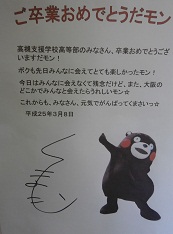 ご卒業おめでとうだモン
高槻支援学校高等部のみなさん、卒業おめでとうござ
いますだモン！
ボクも先日みんなに会えてとても楽しかったモン！
今日はみんなに会えなくて残念だけど、また、大阪の
どこかでみんなと会えたらうれしいモン☆
これからも、みなさん、元気でがんばってくまさいっ☆
平成25年3月8日
くまモン